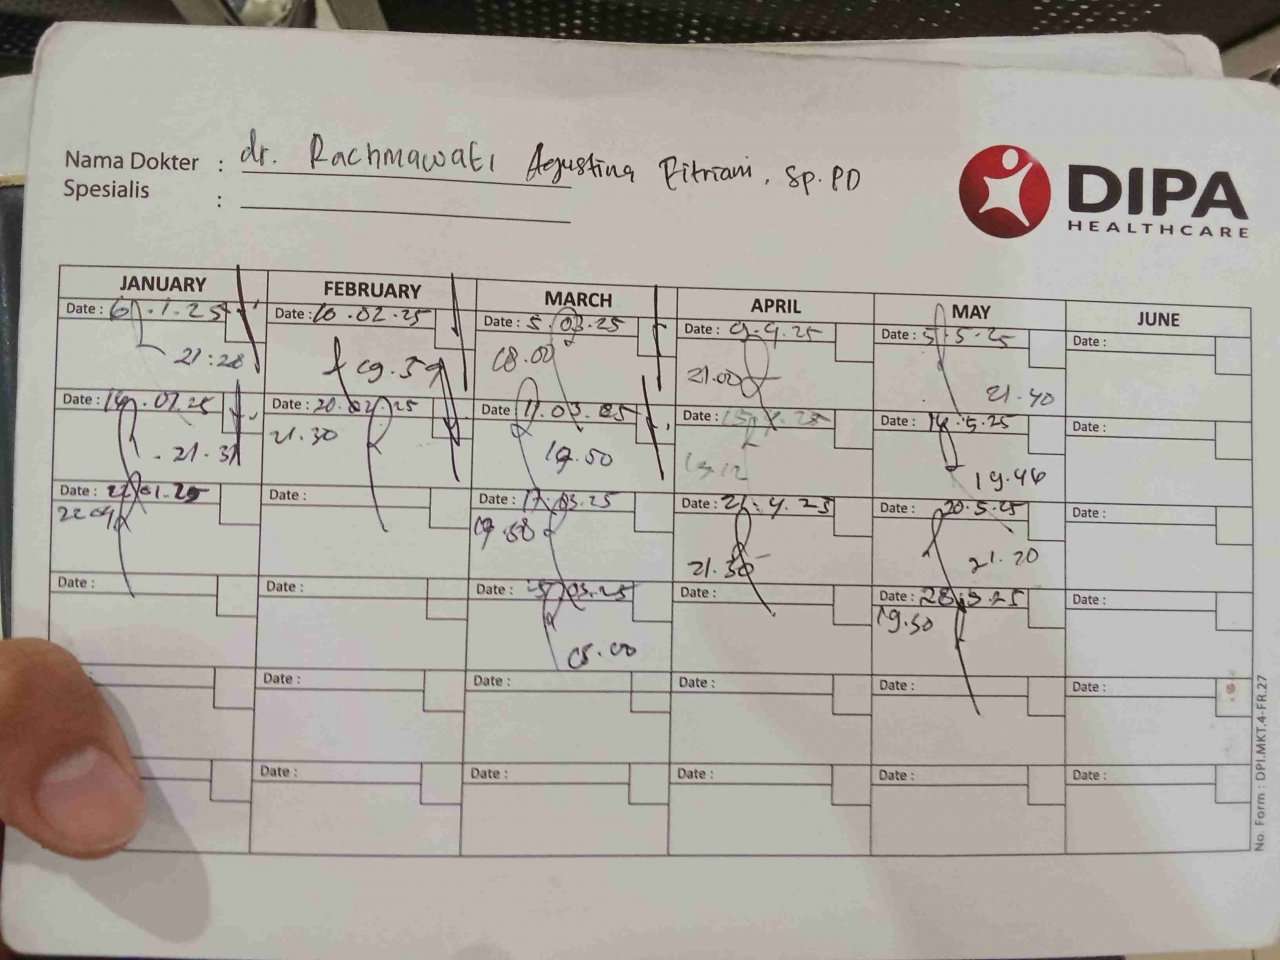 Nama Dokter : dr. Rachmawati Agustina Fitriani, Sp.PD
Spesialis :
DIPA
HEALTHCARE
JANUARY FEBRUARY MARCH APRIL MAY JUNE
Date : 6.1.25 Date : 10.02.25 Date : 5.03.25 Date : 9.4.25 Date : 5.5.25 Date :
21:28 19.59 18.00 21.00 21.40
Date : 14.01.25 Date : 20.02.25 Date : 11.03.25 Date : Date : 14.5.25 Date :
21.31 21.30 19.50 19.12 19.46
Date : 22.01.25 Date : Date : 17.03.25 Date : 21.4.25 Date : 20.5.25 Date :
22.09 19.58 21.30 21.20
Date : Date : Date : 03.25 Date : Date : 28.5.25 Date :
19.30
Date : Date : Date : Date : Date :
Date : Date : Date : Date : Date :
No. Form : DPI.MKT.4-FR.27